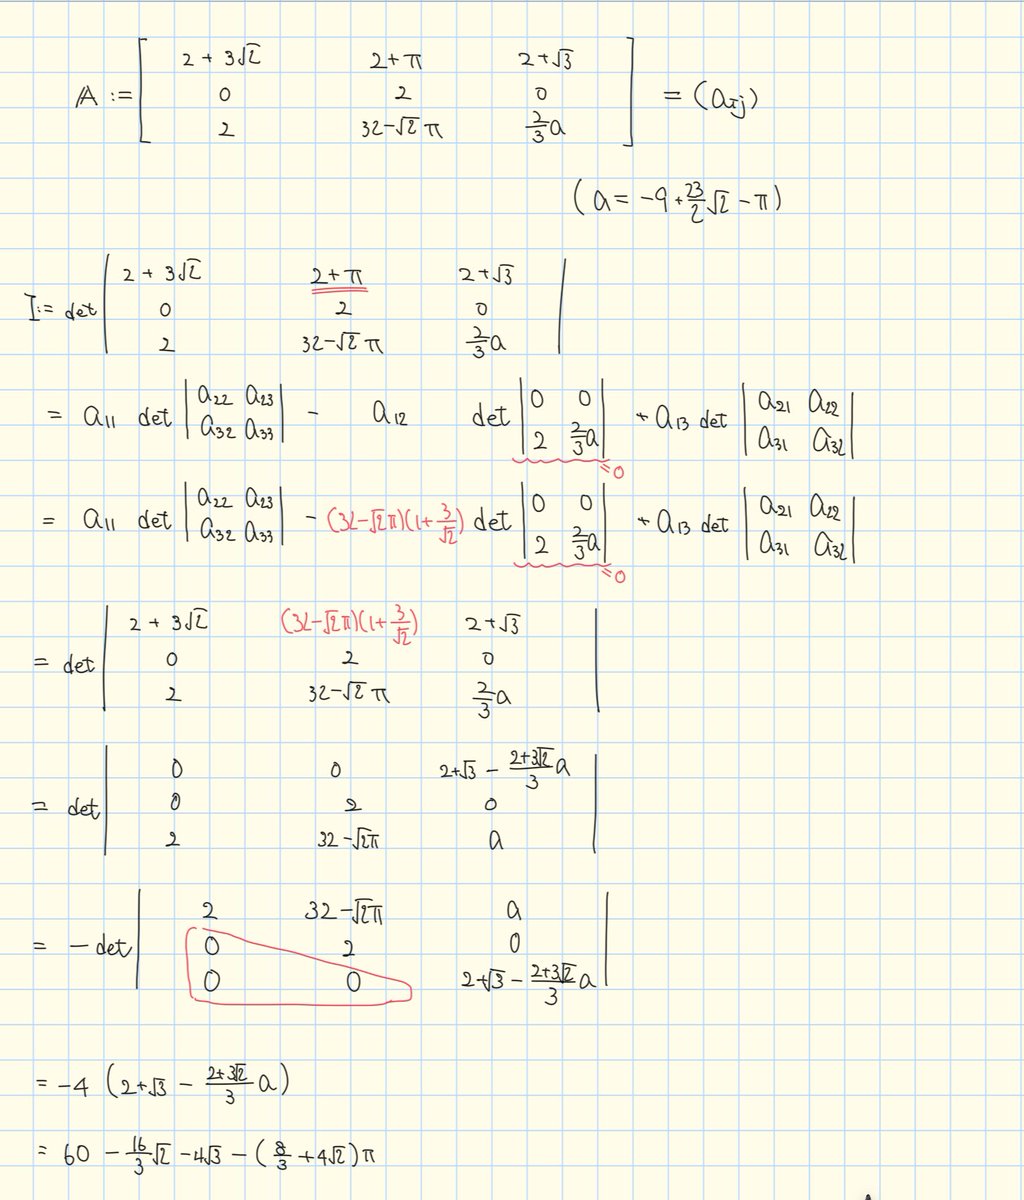 𝔸 := [ 2 + 3√2  2 + π  2 + √3
0  2  0
2  32 - √2 π  2/3 a ] = (aij)
(a = -9 + 23/2 √2 - π)
I := det | 2 + 3√2  2 + π  2 + √3
0  2  0
2  32 - √2 π  2/3 a |
= a11 det | a22 a23
a32 a33 | - a12 det | 0 0
2 2/3 a | =0 + a13 det | a21 a22
a31 a32 |
= a11 det | a22 a23
a32 a33 | - (32-√2π)(1+3/√2) det | 0 0
2 2/3 a | =0 + a13 det | a21 a22
a31 a32 |
= det | 2 + 3√2  (32-√2π)(1+3/√2)  2 + √3
0  2  0
2  32 - √2 π  2/3 a |
= det | 0  0  2+√3 - (2+3√2)/3 a
0  2  0
2  32 - √2π  a |
= - det | 2  32 - √2π  a
0  2  0
0  0  2+√3 - (2+3√2)/3 a |
= -4 (2+√3 - (2+3√2)/3 a)
= 60 - 16/3 √2 - 4√3 - (8/3 + 4√2)π